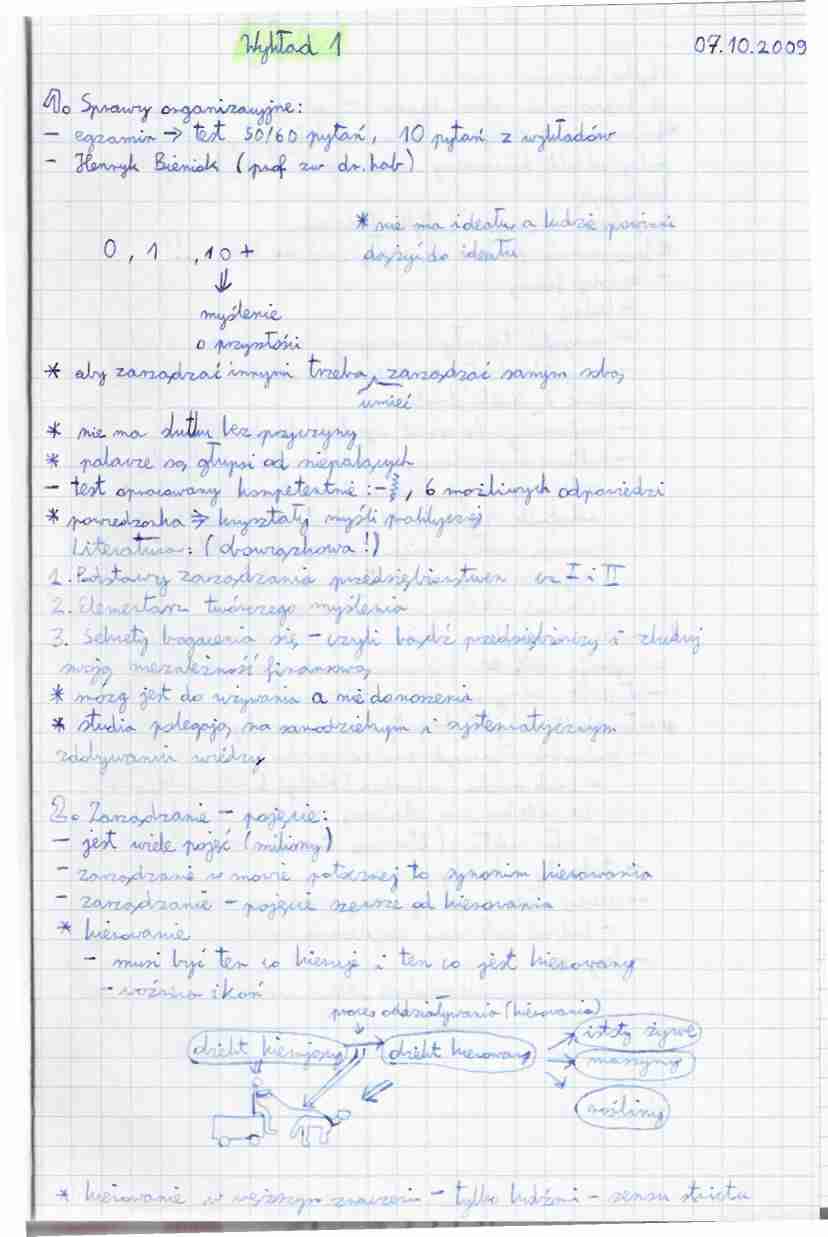 Wykład 1 07.10.2009
1. Sprawy organizacyjne:
- egzamin → test 50/60 pytań, 10 pytań z wykładów
- Henryk Bieniok (prof zw dr. hab)
* nie ma ideału a ludzie powinni
0, 1 , 10 + dążyć do ideału
⇓
myślenie
o przyszłości
* aby zarządzać innymi trzeba zarządzać samym sobą
umieć
* nie ma skutku bez przyczyny
* palacze są głupsi od niepalących
- test opracowany kompetentnie :- , 6 możliwych odpowiedzi
* powiedzonka ⇒ kryształy myśli politycznej
Literatura: (obowiązkowa!)
1. Podstawy zarządzania przedsiębiorstwem cz I i II
2. Elementarz twórczego myślenia
3. Sekrety bogacenia się - czyli bądź przedsiębiorczy i zbuduj
swoją niezależność finansową
* mózg jest do używania a nie do noszenia
* studia polegają na samodzielnym i systematycznym
zdobywaniu wiedzy
2. Zarządzanie - pojęcie:
- jest wiele pojęć (miliony)
- zarządzanie w mowie potocznej to synonim kierowania
- zarządzanie - pojęcie szersze od kierowania
* kierowanie
- musi być ten co kieruje i ten co jest kierowany
- woźnica i koń
proces oddziaływania (kierowania)
obiekt kierujący → obiekt kierowany
istoty żywe
maszyny
rośliny
* kierowanie w węższym znaczeniu - tylko ludźmi - sensu stricto